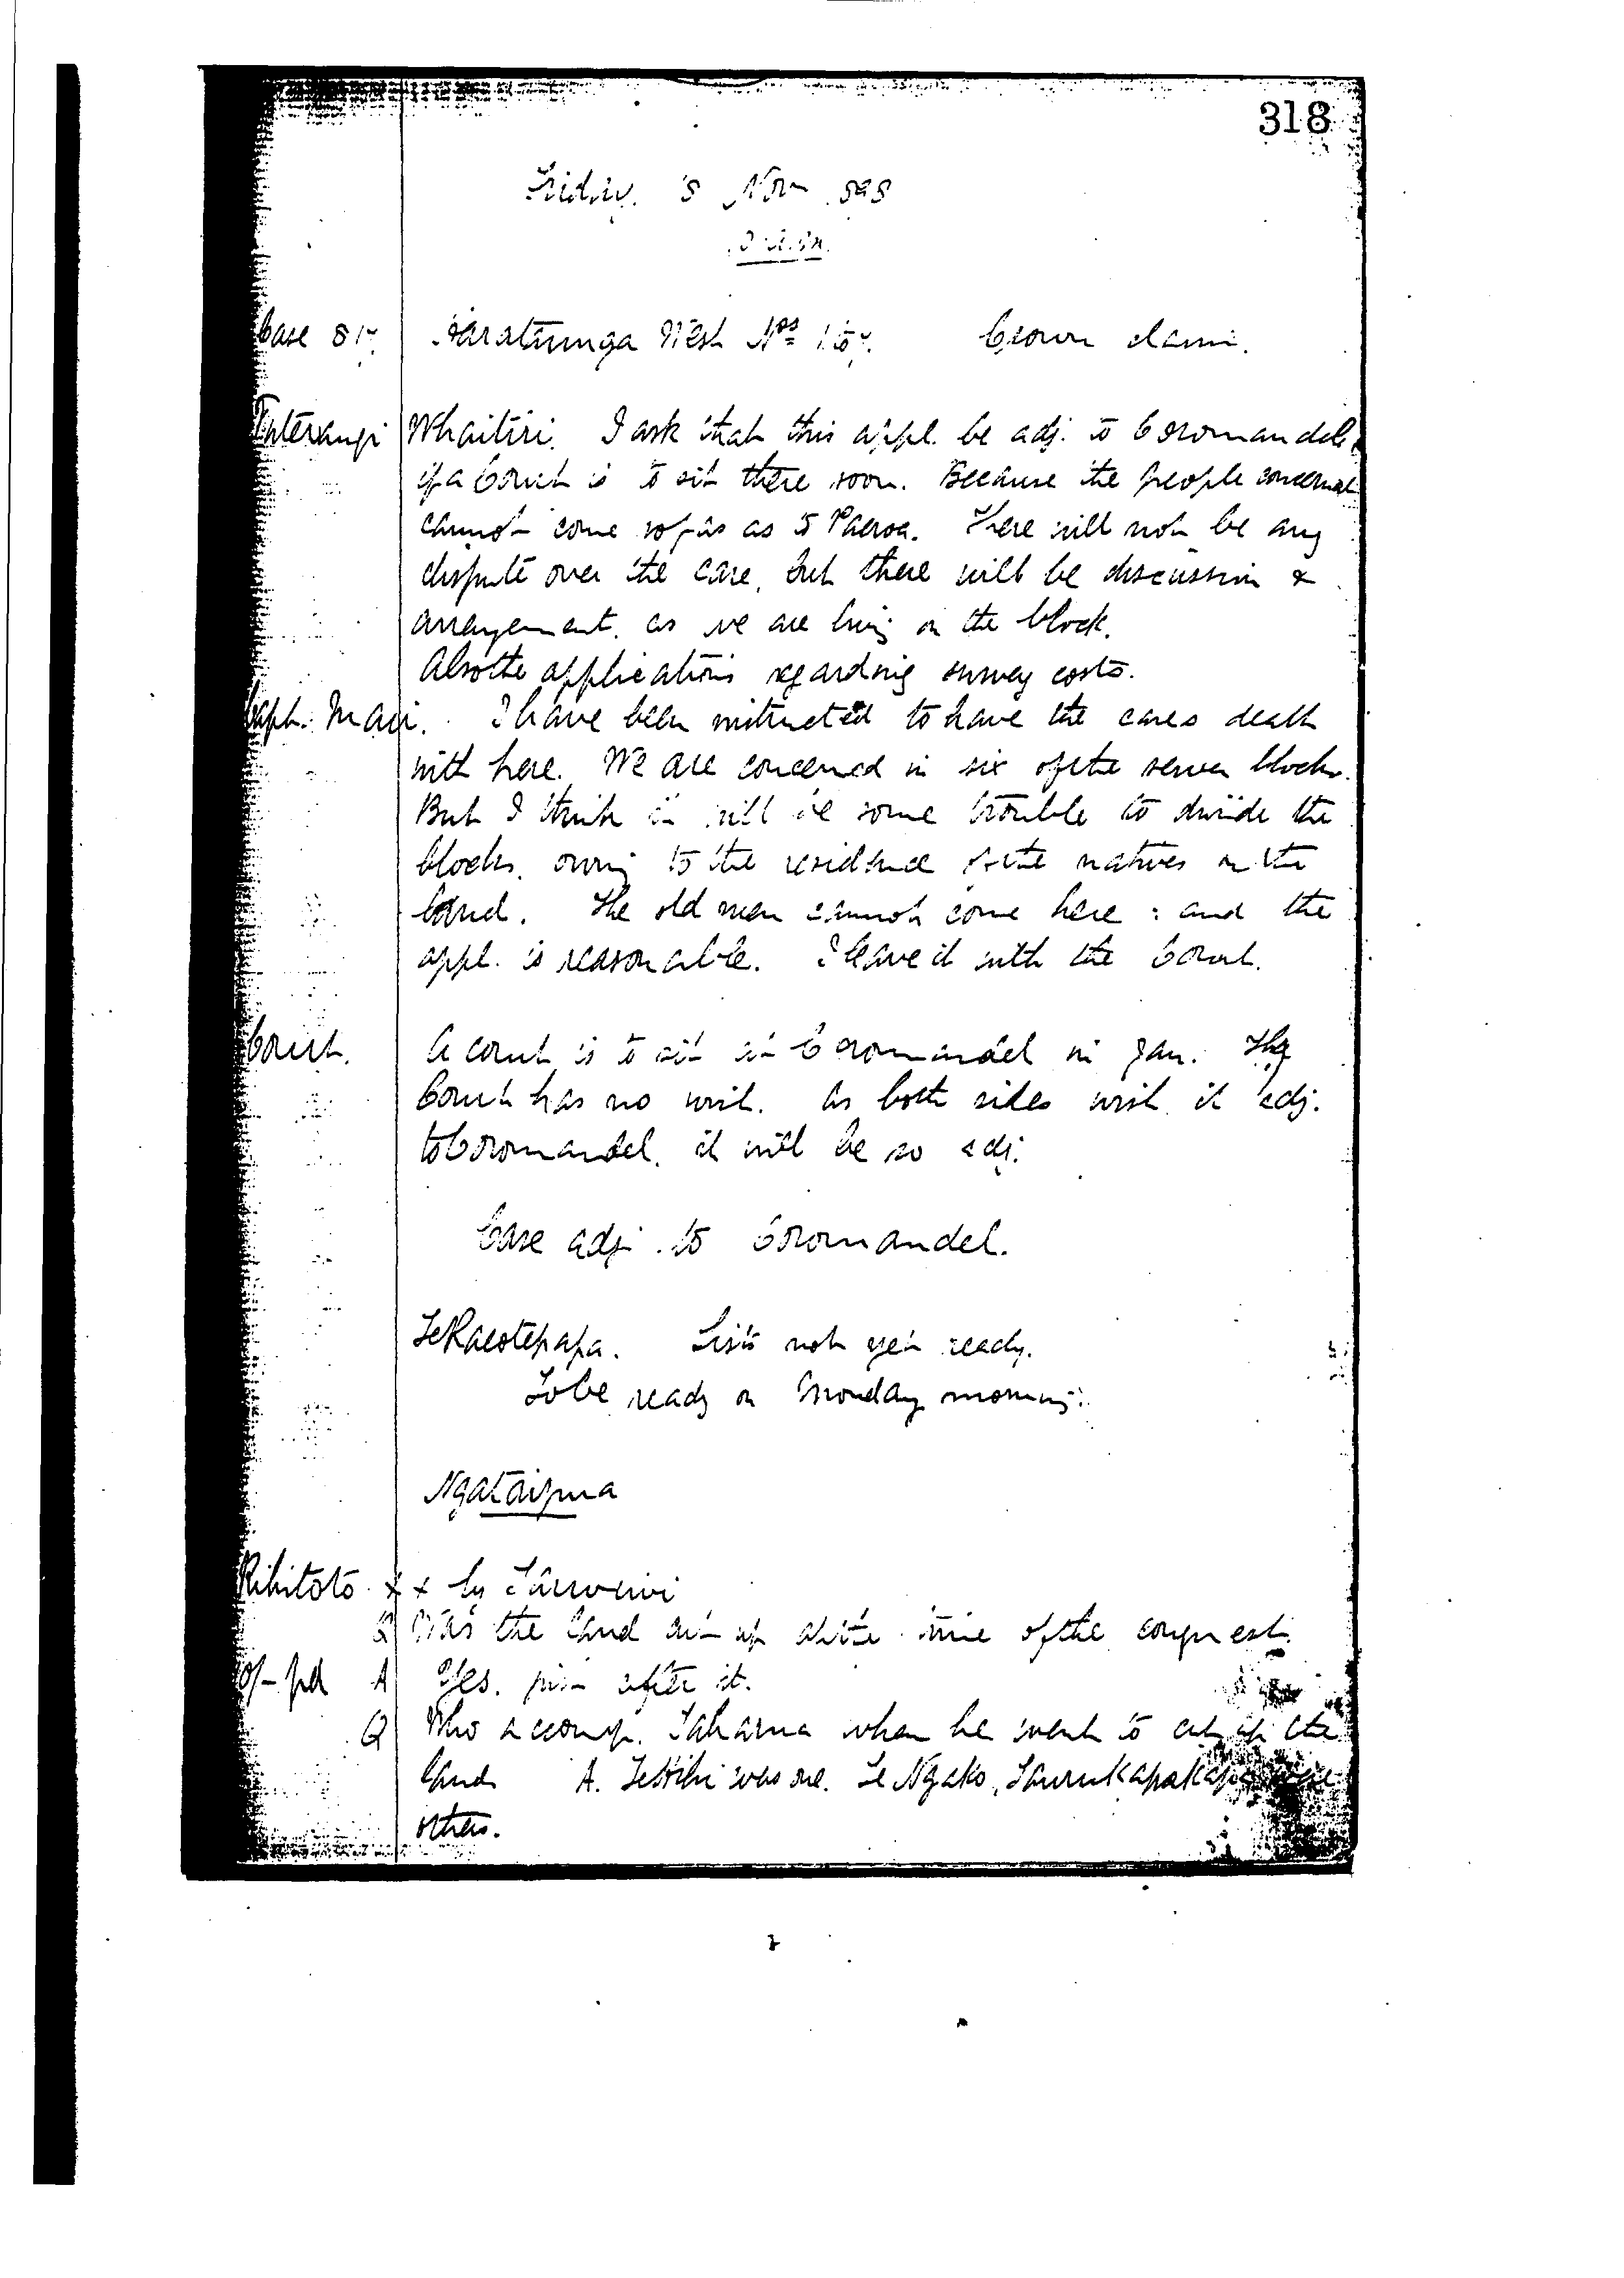 318
Friday. 5 Nov
Case West Nos Crown claim.
Whaitiri. I ask that this appl. be adj. to Coromandel
if a Court is to sit there soon. Because the people concerned
cannot come so far as to Paeroa. There will not be any
dispute over the case, but there will be discussion &
arrangement. as we are living on the block.
Also the applications regarding survey costs.
Capt. Mair. I have been instructed to have the cases dealt
with here. We are concerned in six of the seven blocks.
But I think it will be some trouble to divide the
blocks, owing to the residence of the natives on the
land. The old men cannot come here : and the
appl. is reasonable. I leave it with the Court.
Court. A court is to sit at Coromandel in Jan. The
Court has no wish. As both sides wish it adj.
to Coromandel, it will be so adj.
Case adj. to Coromandel.
Te Raeotepapa. Lists not yet ready.
To be ready on Monday morning.
Ngataipua
Rihitoto x x by
Q Was the land cut up at the time of the conquest.
A Yes. just after it.
Q Who accomp. when he went to cut up the
land A. was one. Te Ngako, were
others.